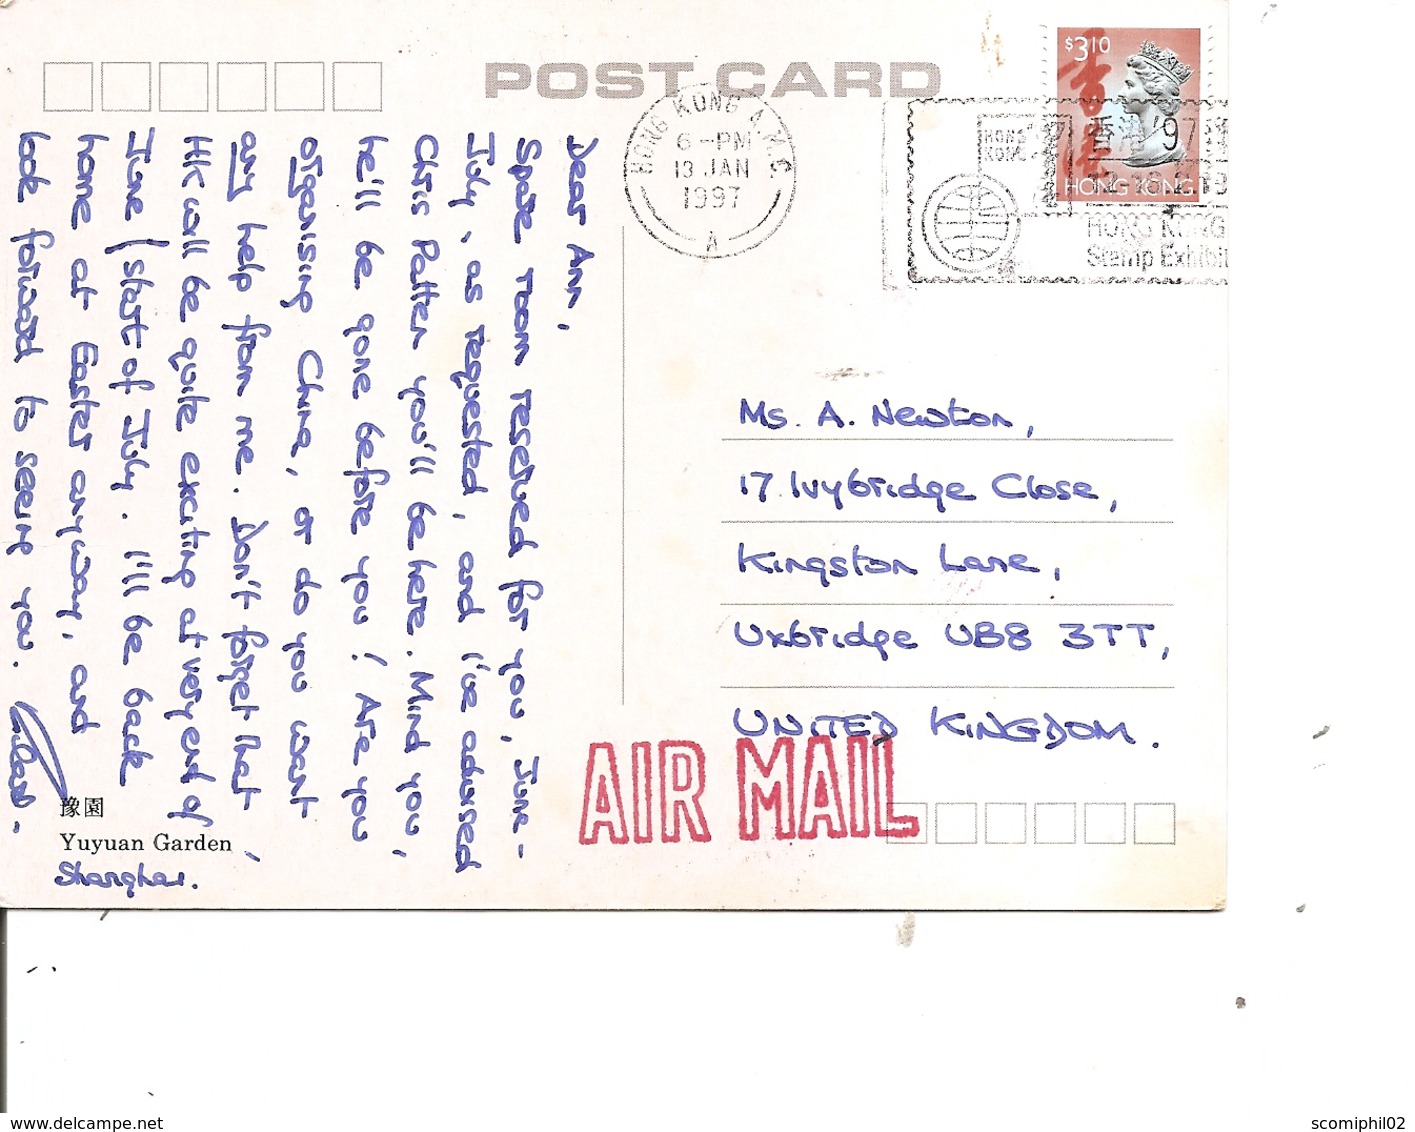 POST CARD
$3.10
香港
HONG KONG
HONG KONG A.M.C
6-PM
13 JAN
1997
A
HONG KONG
香港 '97
HONG KONG
Stamp Exhibit
Dear Ann,
Spare room reserved for you, June-
July, as requested, and I've advised
Chris Patten you'll be here. Mind you,
he'll be gone before you! Are you
organising China, or do you want
any help from me. Don't forget that
HK will be quite exciting at very end of
June / start of July. I'll be back
home at Easter anyway, and
look forward to seeing you.
豫園
Yuyuan Garden,
Shanghai.
Ms. A. Newton,
17 Ivybridge Close,
Kingston Lane,
Uxbridge UB8 3TT,
UNITED KINGDOM.
AIR MAIL
delcampe.net
scomiphil02